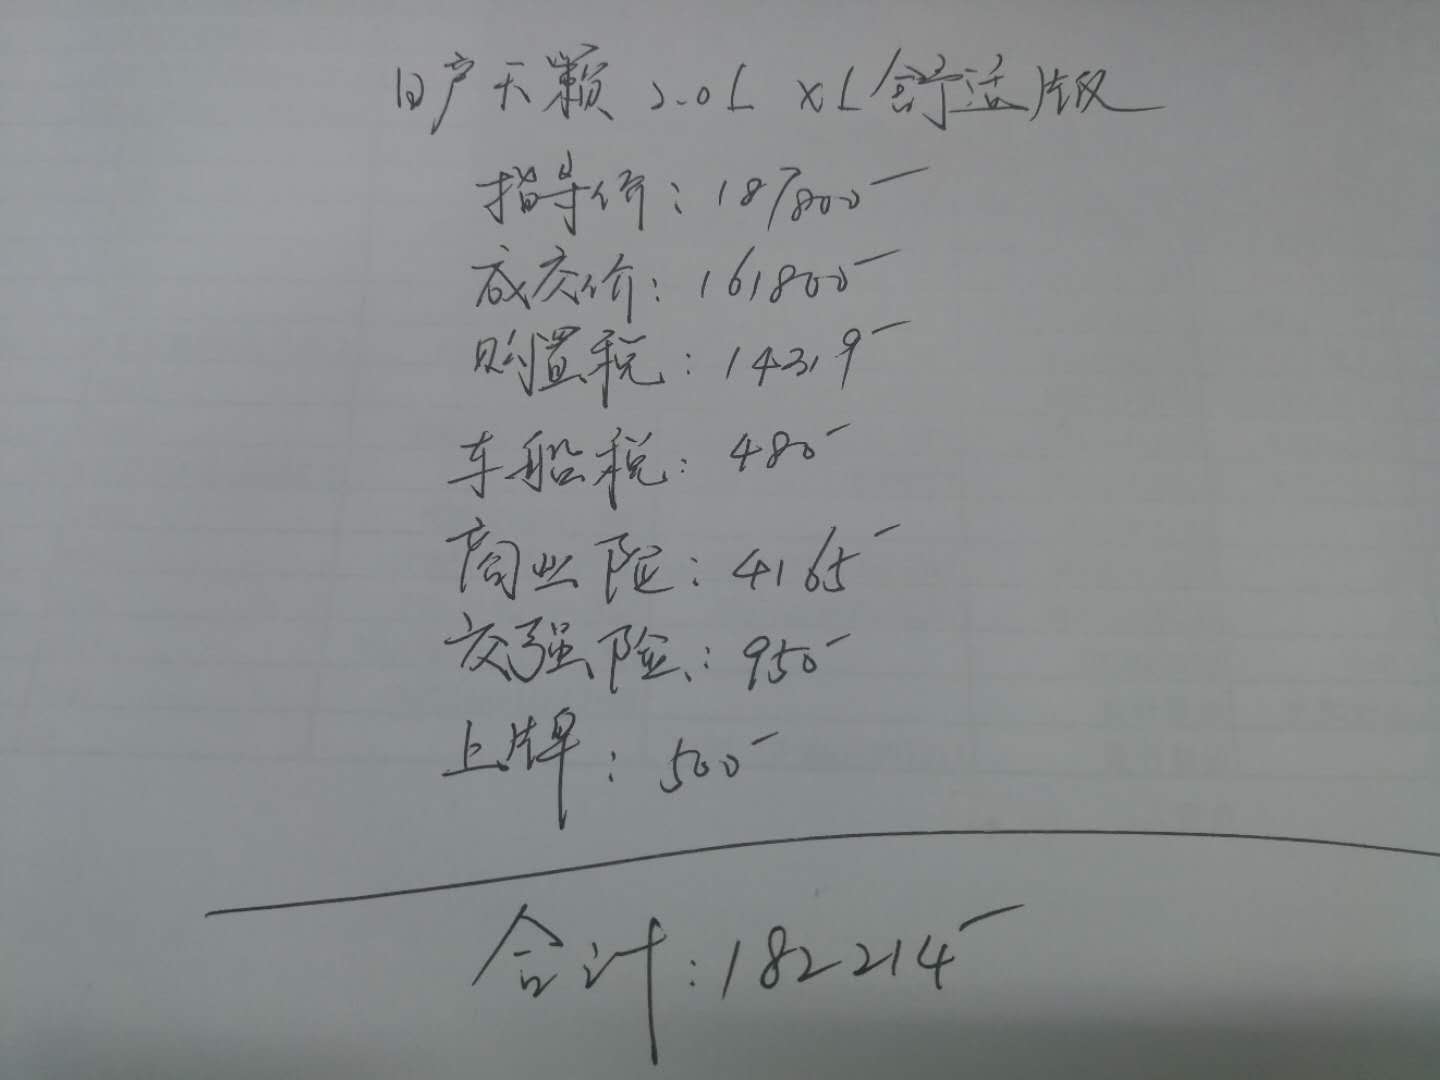 日产天籁 2.0L XL舒适版
指导价：187800-
成交价：161800-
购置税：14319-
车船税：480-
商业险：4165-
交强险：950-
上牌：500-
合计：182214-